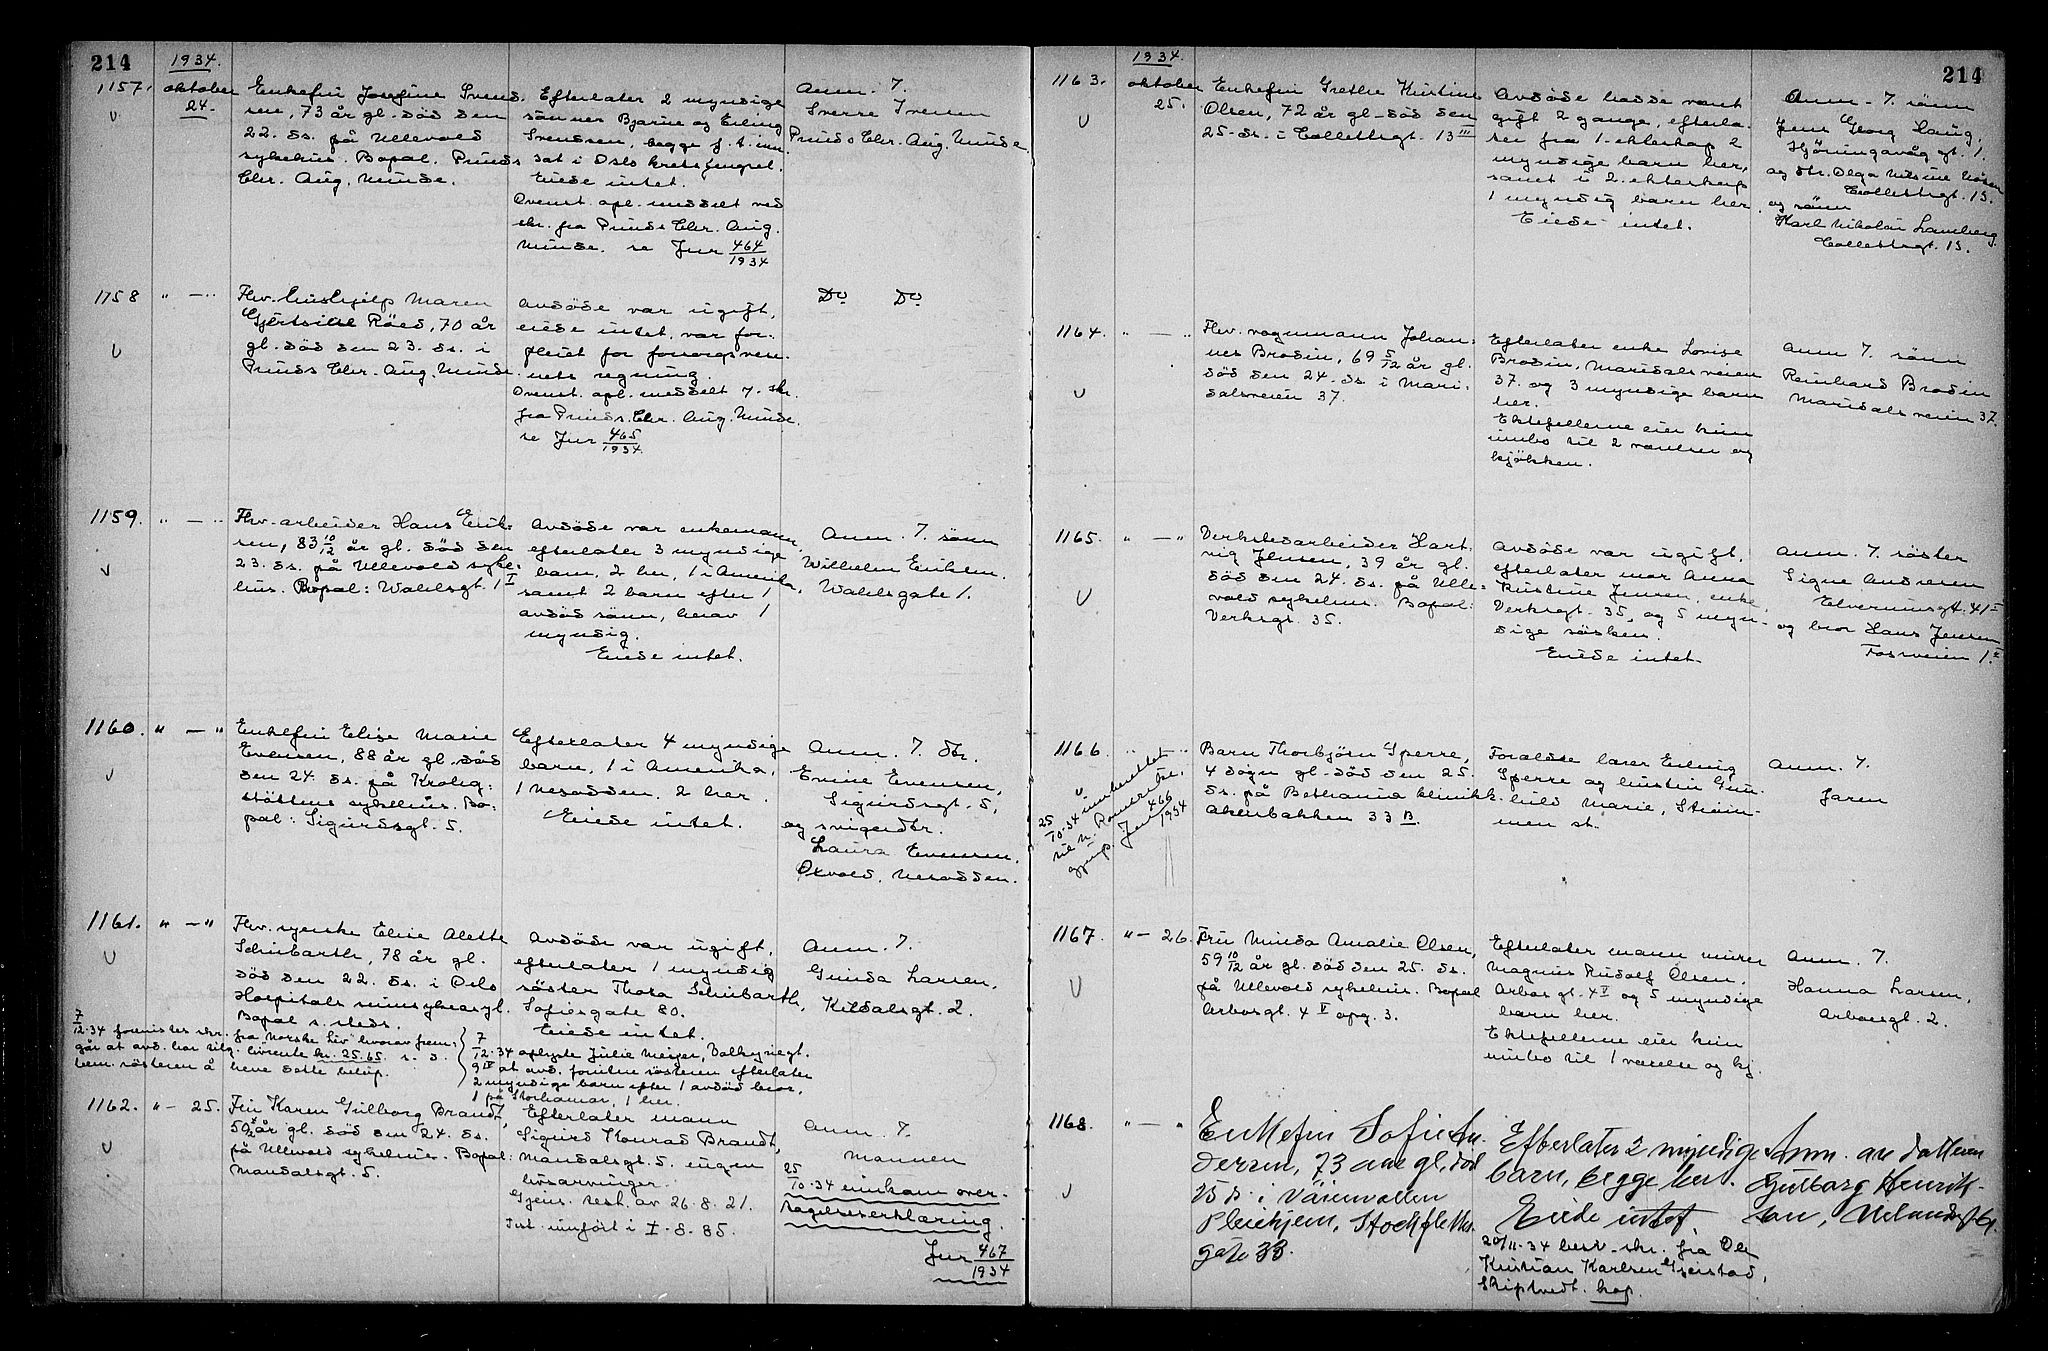 214
1934.
1157. oktober 24.
Enkefru Josefine Svend-
sen, 73 år gl. död den
22. ds. på Ullevold
sykehus. Bopal. Prinds
Chr. Aug. Minde.
Efterlater 2 myndige
sönner Bjarne og Erling
Svendsen, begge f. t. inn
sat i Oslo kretsfengsel.
Eiede intet.
Ovenst. opl. meddelt ved
skr. fra Prinds Chr. Aug.
Minde. se Jur 464/1934
Anm. 7.
Sverre Iversen
Prinds Chr. Aug. Minde
1158 " — "
Fhv. hushjelp Maren
Gjertine Röed, 70 år
gl. död den 23. ds. i
Prinds Chr. Aug. Minde.
Avdöde var ugift,
eiede intet, var for-
pleiet for forsorgsvese-
nets regning.
Ovenst. opl. meddelt v. skr.
fra Prinds. Chr. Aug. Minde.
se Jur 465/1934
Do Do
1159. " — "
Fhv. arbeider Hans Erik-
sen, 83 10/12 år gl. död den
23. ds. på Ullevold syke-
hus. Bopal: Wahlsgt. 1 I
Avdöde var enkemann,
efterlater 3 myndige
barn, 2 her, 1 i Amerika,
samt 2 barn efter 1
avdöd sönn, herav 1
myndig.
Eiede intet.
Anm. 7. sönn
Wilhelm Eriksen.
Wahlsgate 1.
1160. " — "
Enkefru Elise Marie
Evensen, 88 år gl. död
den 24. ds. på Krohg-
stöttens sykehus. Bo-
pal: Sigurdsgt. 5.
Efterlater 4 myndige
barn, 1 i Amerika,
1 Nesodden. 2 her.
Eiede intet.
Anm. 7. dtr.
Emine Evensen,
Sigurdsgt. 5,
og svigerdtr.
Laura Evensen,
Oxvold, Nesodden.
1161. " — "
Fhv. syerske Elise Alette
Schubarth, 78 år gl.
död den 22. ds. i Oslo
Hospitals sinnsykeasyl.
Bopal s. steds.
Avdöde var ugift,
efterlater 1 myndig
söster Thora Schubarth,
Sofiesgate 80.
Eiede intet.
Anm. 7.
Gunda Larsen,
Kildalsgt. 2.
7/12-34 forevistes skr. fra "Norske Liv" hvorav frem-
går at avd. har tilg. livrente kr. 25.65.
bem. sösteren å heve dette belöp.
7/12-34 oplyste Julie Meyer, Valkyriegt.
9 IV at avd. foruten sösteren efterlater
2 myndige barn efter 1 avdöd bror,
1 på Storhamar, 1 her.
1162. " — 25.
Fru Karen Gulborg Brandt,
50 år gl. död den 24. ds.
på Ullevold sykehus. Bopal:
Mandalsgt. 5.
Efterlater mann
Sigurd Konrad Brandt,
Mandalsgt. 5. ingen
livsarvinger.
Gjens. test. av 26.8.21.
Test. innfört i I-8-85.
Anm. 7.
Mannen
25/10-34 innkom over-
tagelseserklæring.
Jur 467/1934
214
1934.
1163. oktober 25.
Enkefru Grethe Kristine
Olsen, 72 år gl. död den
25. ds. i Collettsgt. 13 III
Avdöde hadde vært
gift 2 gange, efterla-
ter fra 1. ekteskap 2
myndige barn her,
samt i 2. ekteskap
1 myndig barn her.
Eiede intet.
Anm. 7. sönn
Jens Georg Haug.
Hjörungavåg gt. 1.
og dtr. Olga Nilsine
Collettsgt. 15.
og sönn
Karl Nikolai Lamberg
Collettsgt. 15.
1164. " — "
Fhv. vognmann Johan-
nes Brodin, 69 5/12 år gl.
död den 24. ds. i Mari-
dalsveien 37.
Efterlater enke Lovise
Brodin, Maridalsveien
37. og 3 myndige barn
her.
Ektefellerne eier kun
innbo til 2 værelser og
kjökken.
Anm 7. sönn
Reinhard Brodin
Maridalsveien 37.
1165. " — "
Verkstedarbeider Hart-
vig Jensen, 39 år gl.
död den 24. ds. på Ulle-
vold sykehus. Bopal:
Verksgt. 35.
Avdöde var ugift,
efterlater mor Anna
Kristine Jensen, enke,
Verksgt. 35, og 5 myn-
dige sösken.
Eiede intet.
Anm. 7. söster
Signe Andresen
Elverumsgt. 41 I
og bror Hans Jensen
Fossveien 1. I
1166. " "
Barn Thorbjörn Sperre,
4 dögn gl. död den 25.
ds. på Bethania klinikk
Akersbakken 33 B.
Foreldre lærer Erling
Sperre og hustru Gun-
hild Marie, Strøm-
men st.
Anm. 7.
faren
25/10-34 innberettet
til N. Romerike.
gjenp. Jur 466/1934
1167. " — 26.
Fru Minda Amalie Olsen,
59 10/12 år gl. död den 25. ds.
på Ullevold sykehus. Bopal
Arbosgt. 4 V opg. 3.
Efterlater mann murer
Magnus Rudolf Olsen,
Arbos gt. 4 V og 5 myndige
barn her.
Ektefellerne eier kun
innbo til 1 værelse og kj.
Anm. 7.
Hanna Larsen,
Arbosgt. 2.
1168. " — "
Enkefru Sofie An-
dersen, 73 aar gl. död
25 ds. i Våienvollen
Pleiehjem, Stockfleths
gate 33.
Efterlater 2 myndige
barn, begge her.
Eiede intet.
20/11-34 besv. skr. fra Ole
Kristian Karlsen Gjeistad,
Skiptvedt. kop.
Anm. av datteren
Gulborg Henrik-
sen,